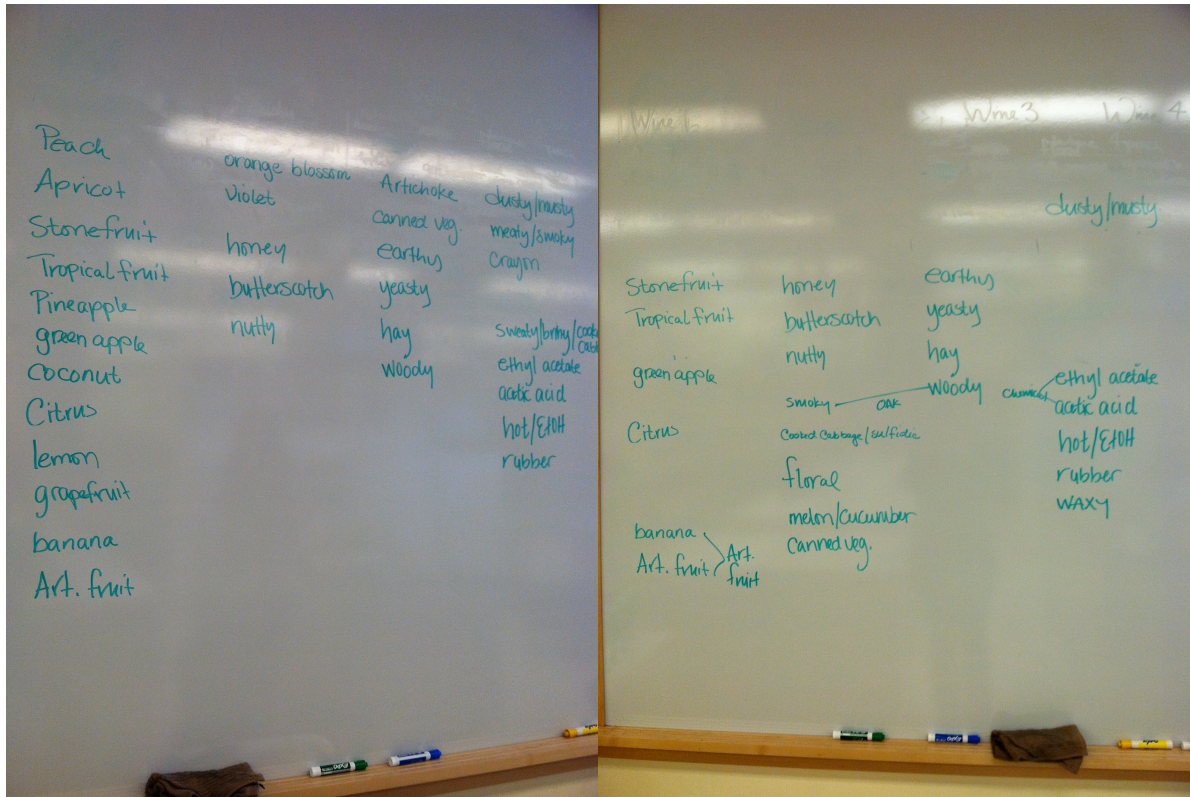 Peach
Apricot
Stonefruit
Tropical fruit
Pineapple
green apple
coconut
Citrus
lemon
grapefruit
banana
Art. fruit
orange blossom
violet
honey
butterscotch
nutty
Artichoke
canned veg.
earthy
yeasty
hay
woody
dusty/musty
meaty/smoky
Crayon
sweaty/briny/
ethyl acetate
acetic acid
hot/EtOH
rubber
Wine
Wine 3
Wine 4
Stonefruit
Tropical fruit
green apple
Citrus
banana
Art. fruit
Art.
fruit
honey
butterscotch
nutty
smoky
OAK
Cooked Cabbage/sulfidic
floral
melon/cucumber
Canned veg.
earthy
yeasty
hay
woody
dusty/musty
chemical
ethyl acetate
acetic acid
hot/EtOH
rubber
WAXY